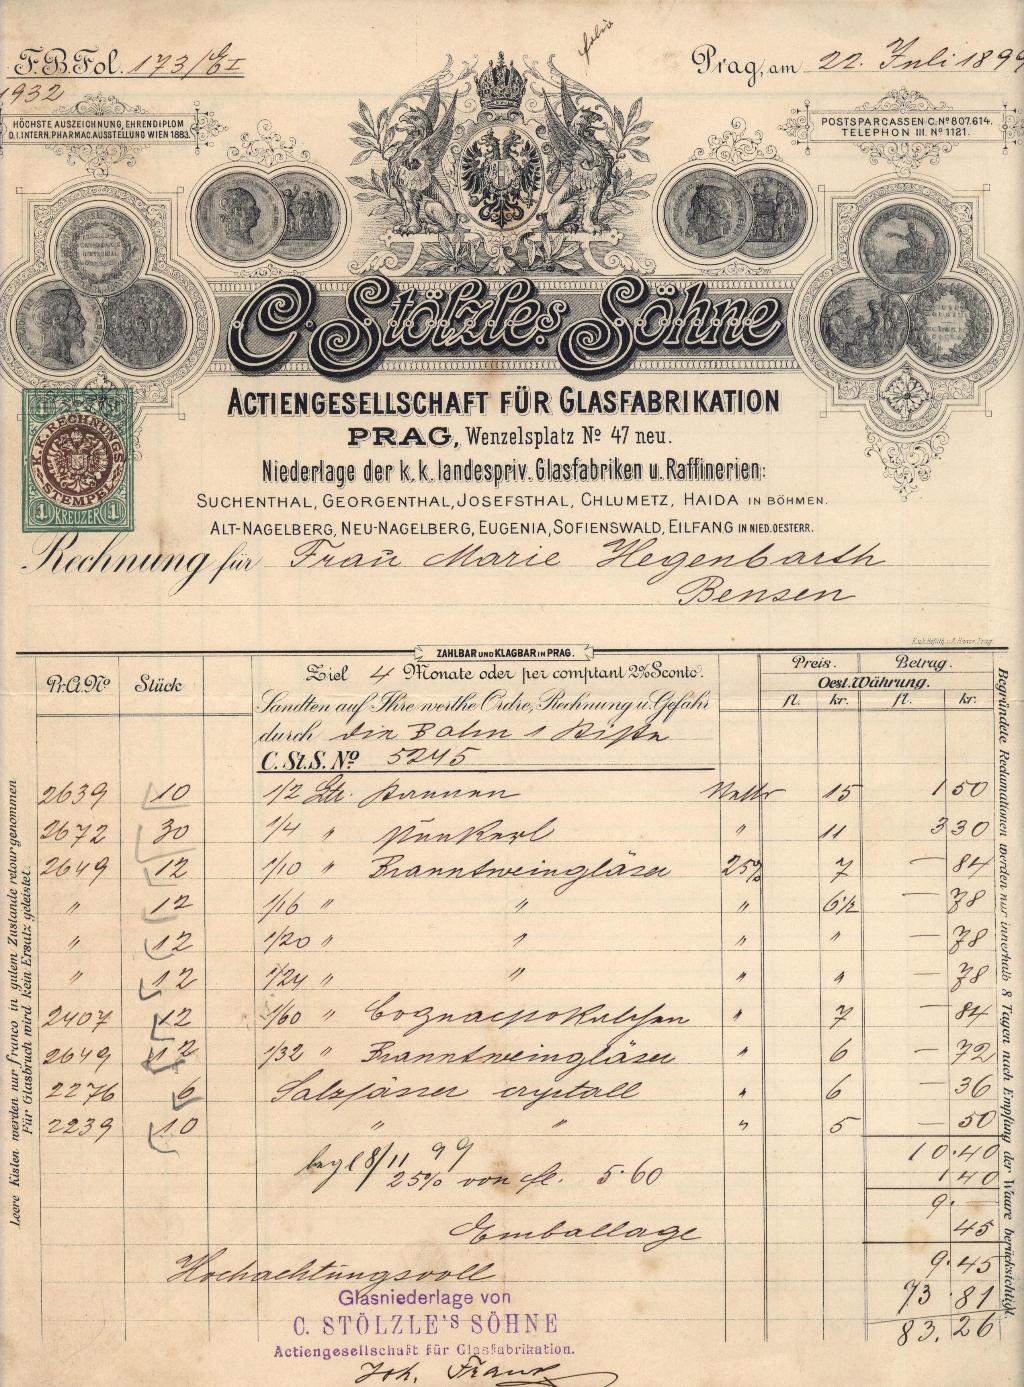 F.B.Fol. 173/EI
1932
Prag, am 22. Juli 1899
HÖCHSTE AUSZEICHNUNG, EHRENDIPLOM
D.I. INTERN. PHARMAC. AUSSTELLUNG WIEN 1883.
POSTSPARCASSEN-C. Nº 807.614.
TELEPHON III. Nº 1121.
C. Stölzle's Söhne
ACTIENGESELLSCHAFT FÜR GLASFABRIKATION
PRAG, Wenzelsplatz Nº 47 neu.
Niederlage der k.k. landespriv. Glasfabriken u. Raffinerien:
SUCHENTHAL, GEORGENTHAL, JOSEFSTHAL, CHLUMETZ, HAIDA IN BÖHMEN.
ALT-NAGELBERG, NEU-NAGELBERG, EUGENIA, SOFIENSWALD, EILFANG IN NIED. OESTERR.
1 K.K. RECHNUNGS 1
STEMPEL
1 KREUZER 1
Rechnung für Frau Marie Hegenbarth
Bensen
ZAHLBAR UND KLAGBAR IN PRAG.
Pr.C. Nº Stück Ziel 4 Monate oder per comptant 2% Sconto. Preis. Betrag.
Oest. Währung.
fl. kr. fl. kr.
Sandten auf Ihre werthe Ordre, Rechnung u. Gefahr
durch die Bahn 1 Kiste
C. St. S. Nº 5245
2639 10 1/2 Ltr. Kannen 15 1 50
2672 30 1/4 " 11 3 30
2649 12 1/10 " Branntweingläser 25% 7 — 84
" 12 1/16 " " " 6 1/2 — 78
" 12 1/20 " " " " — 78
" 12 1/24 " " " " — 78
2407 12 1/60 " " 7 — 84
2649 12 1/32 " Branntweingläser " 6 — 72
2276 6 Salzfässer crystall " 6 — 36
2239 10 " " " 5 — 50
10.40
begl 8/11 99
25% von fl. 5.60 1 40
9.
Emballage 45
9.45
Hochachtungsvoll
73.81
83.26
Glasniederlage von
C. STÖLZLE'S SÖHNE
Actiengesellschaft für Glasfabrikation.
Joh. Franz
Leere Kisten werden nur franco in gutem Zustande retour genommen
Für Glasbruch wird kein Ersatz geleistet.
Begründete Reclamationen werden nur innerhalb 8 Tagen nach Empfang der Waare berücksichtigt.